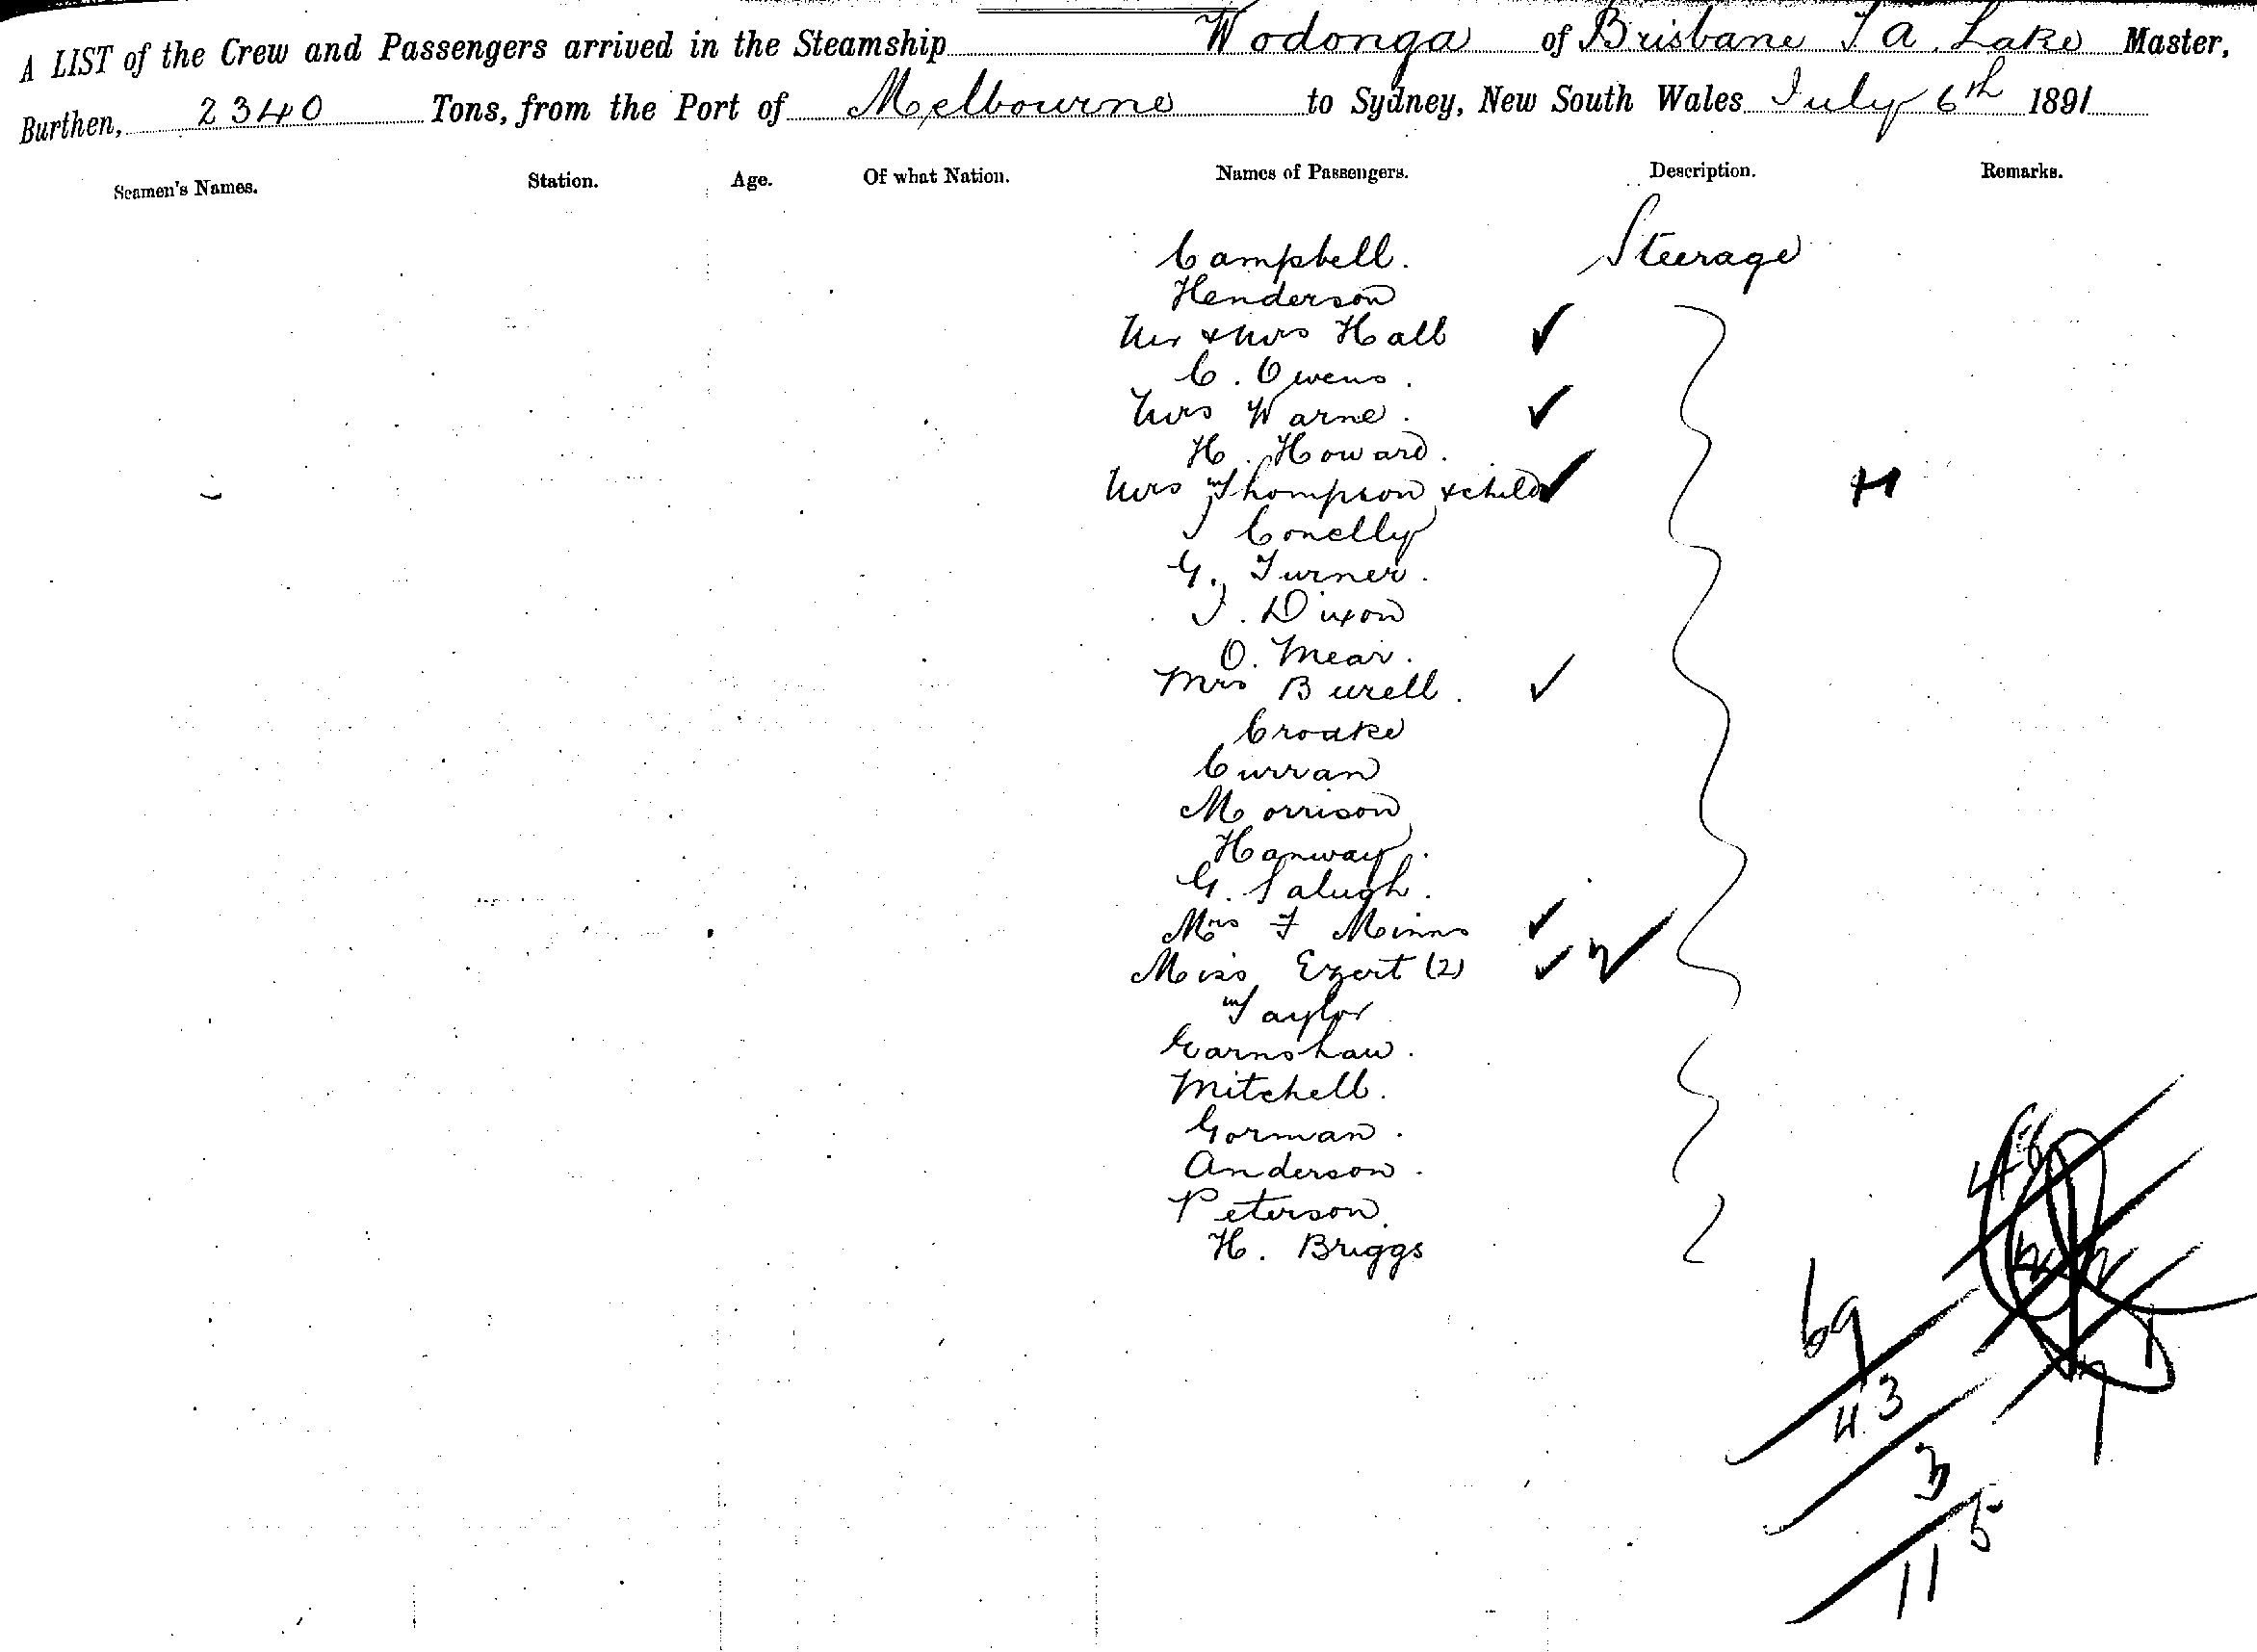 A LIST of the Crew and Passengers arrived in the Steamship Wodonga of Brisbane J A. Lake Master,
Burthen, 2340 Tons, from the Port of Melbourne to Sydney, New South Wales July 6th 1891
Seamen's Names. Station. Age. Of what Nation. Names of Passengers. Description. Remarks.
Campbell. Steerage
Henderson
Mr & Mrs Hall ✓
C. Owens.
Mrs Warne. ✓
H. Howard.
Mrs Thompson & child ✓
J Conelly
G. Turner.
J. Dixon
O. Mear.
Mrs Burell. ✓
Croake
Curran
Morrison
Hanway.
G. Salugh.
Mrs F Minns ✓
Miss Ezert (2) ✓ 2
Taylor
Earnshaw.
Mitchell.
Gorman.
Anderson.
Peterson.
H. Briggs
69
43
3
115